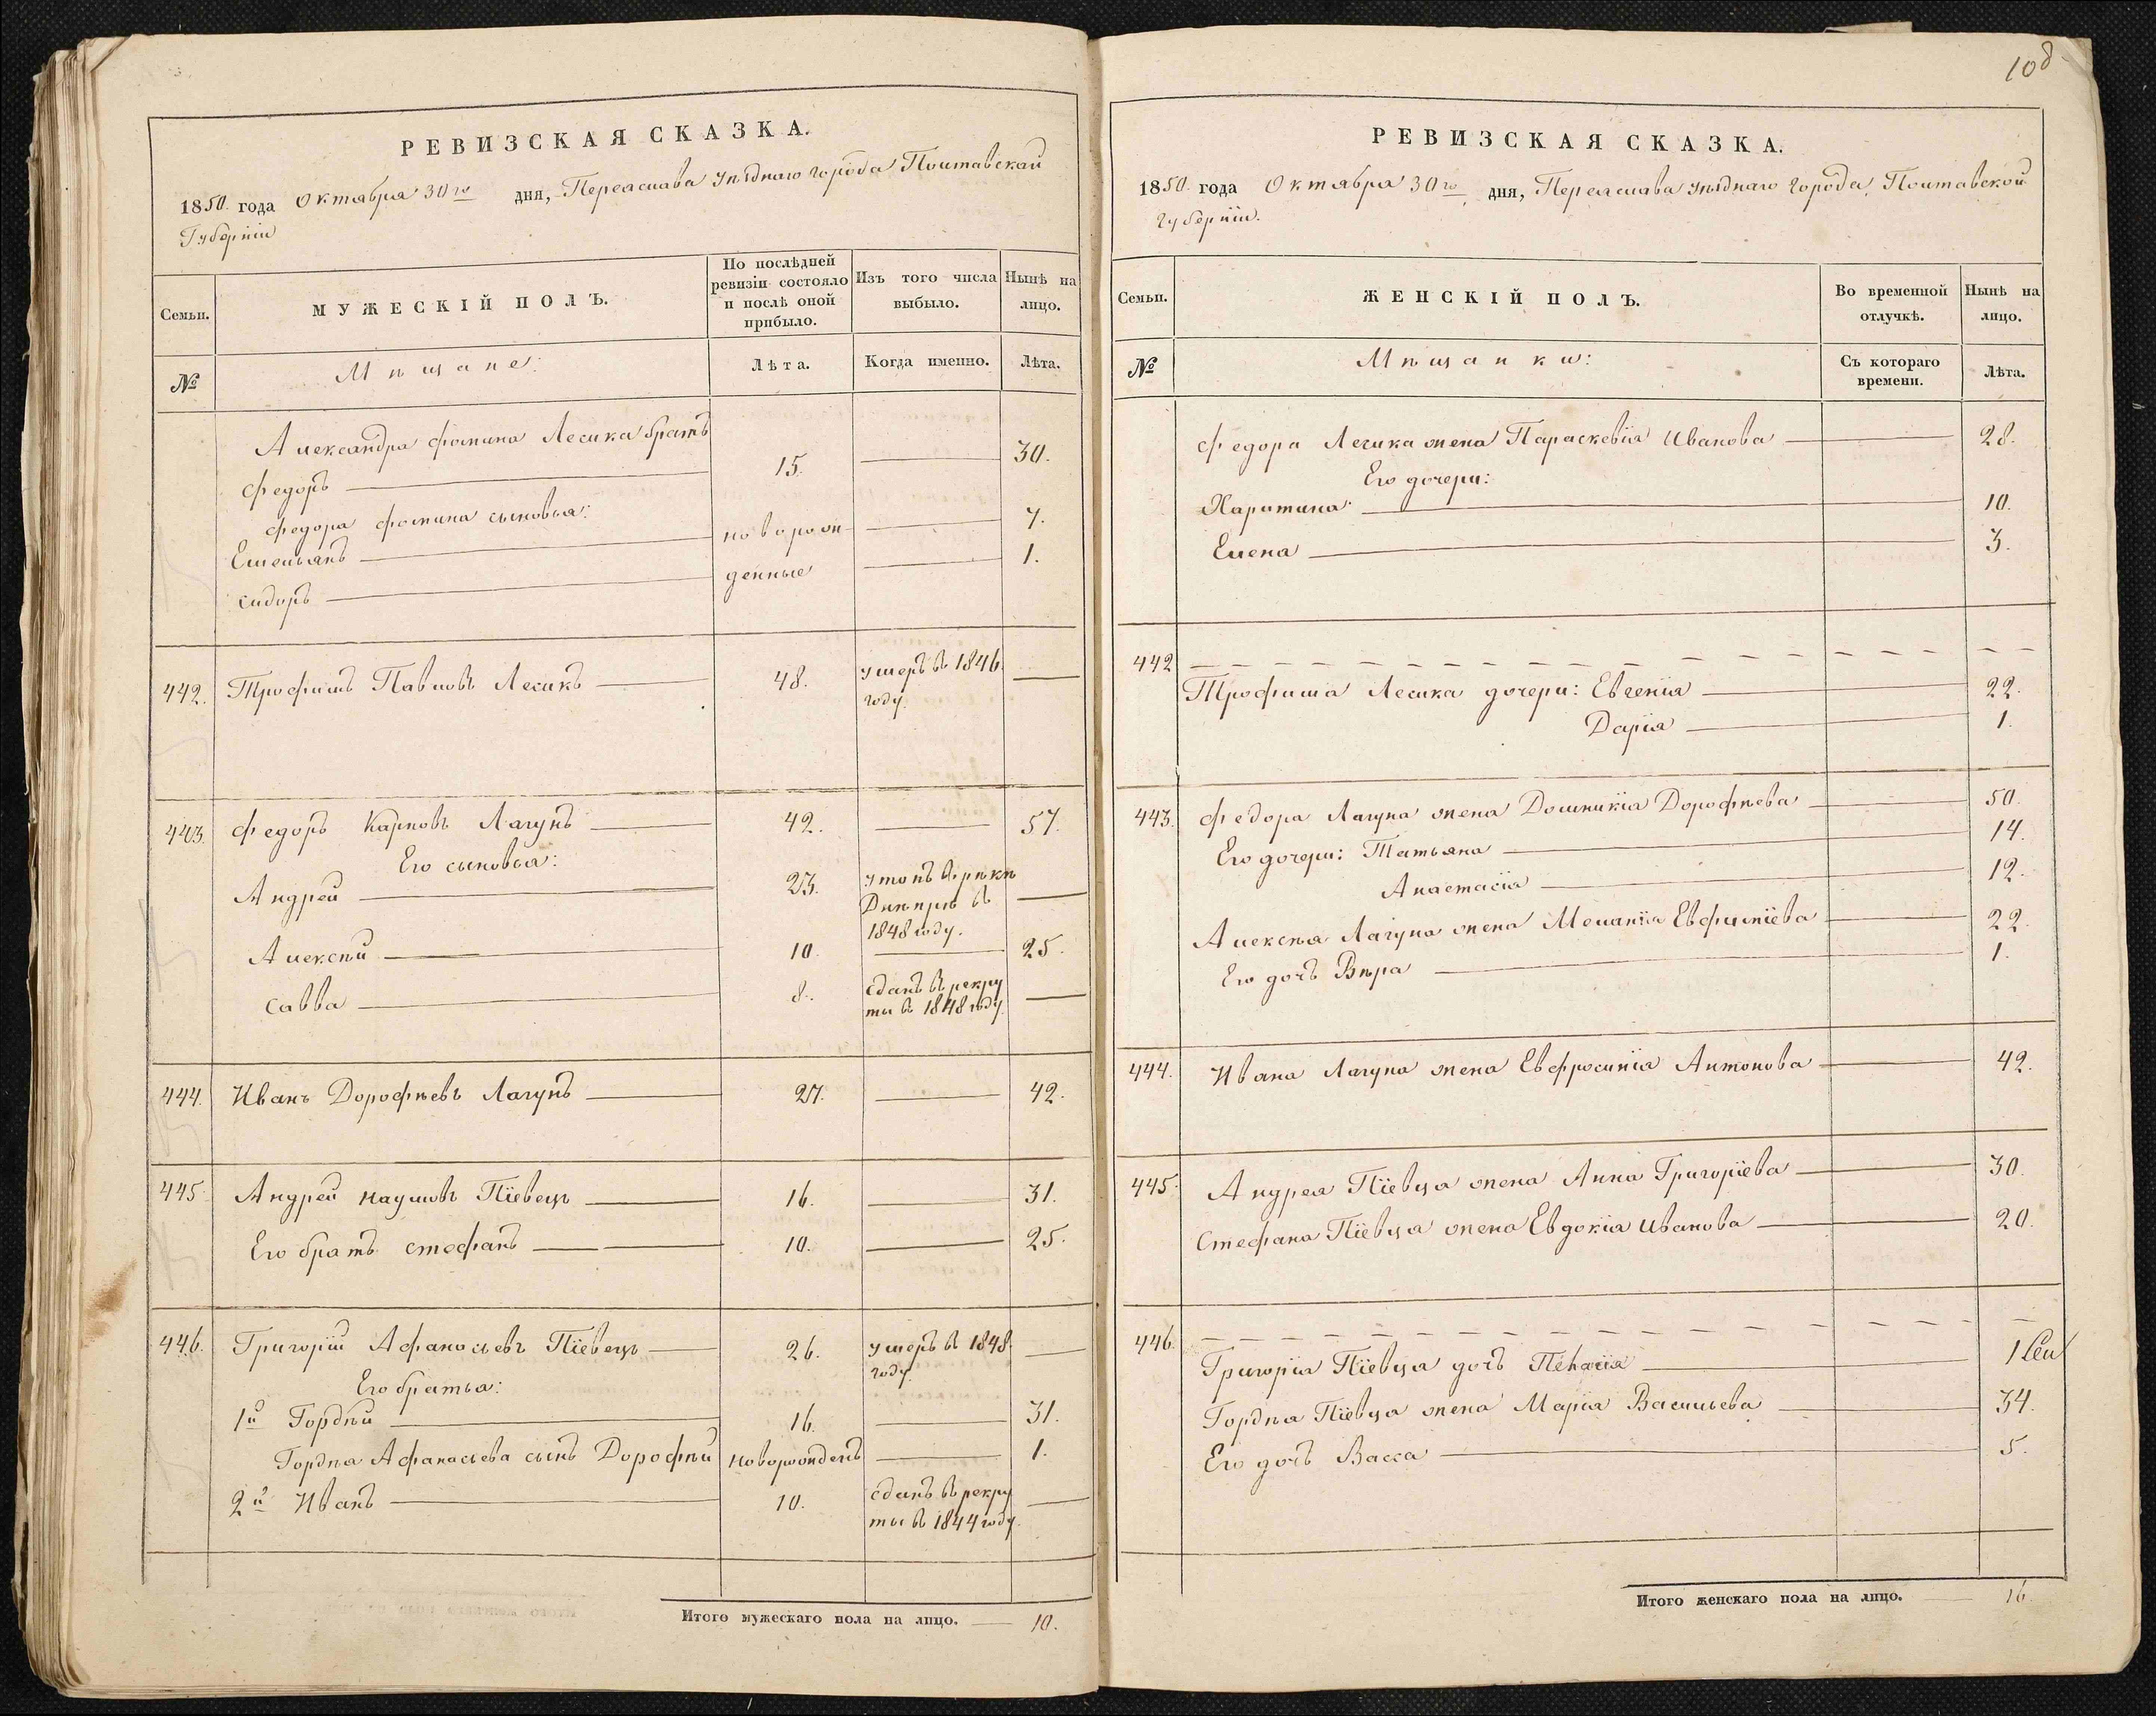 РЕВИЗСКАЯ СКАЗКА.
1850. года Октября 30го дня, Переяслава уѣзднаго города Полтавской
Губерніи
Семьи.
МУЖЕСКІЙ ПОЛЪ.
По послѣдней ревизіи состояло и послѣ оной прибыло.
Изъ того числа выбыло.
Нынѣ на лицо.
№
Мѣщане:
Лѣта.
Когда именно.
Лѣта.
Александра Фомина Лесика братъ
Федоръ — 15. — 30.
Федора Фомина сыновья:
Емельянъ — новорож- — 7.
Сидоръ — денные — 1.
442. Трофимъ Павловъ Лесикъ — 48. умеръ въ 1846 —
году.
443. Федоръ Карповъ Лагунъ — 42. — 57.
Его сыновья:
Андрей — 23. утопъ въ рѣкѣ
Днѣпрѣ въ —
1848 году.
Алексѣй — 10. — 25.
Савва — 8. сданъ въ рекру —
ты въ 1848 году.
444. Иванъ Дорофѣевъ Лагунъ — 27. — 42.
445. Андрей Наумовъ Піевецъ — 16. — 31.
Его братъ Стефанъ — 10. — 25.
446. Григорій Афанасьевъ Піевецъ — 26. умеръ въ 1848. —
году.
Его братья:
1й Гордѣй — 16. — 31.
Гордѣя Афанасьева сынъ Дорофѣй новорожденъ — 1.
2й Иванъ — 10. сданъ въ рекру —
ты въ 1844 году.
Итого мужескаго пола на лицо. — 10.
108
РЕВИЗСКАЯ СКАЗКА.
1850. года Октября 30го дня, Переяслава уѣзднаго города, Полтавской
губерніи.
Семьи.
ЖЕНСКІЙ ПОЛЪ.
Во временной отлучкѣ.
Нынѣ на лицо.
№
Мѣщанки:
Съ котораго времени.
Лѣта.
Федора Лесика жена Параскевія Иванова — 28.
Его дочери:
Харитина — 10.
Елена — 3.
442
Трофима Лесика дочери: Евгенія — 22.
Дарія — 1.
443. Федора Лагуна жена Домникія Дорофѣева — 50.
Его дочери: Татьяна — 14.
Анастасія — 12.
Алексѣя Лагуна жена Меланія Евфиміева — 22.
Его дочь Вѣра — 1.
444. Ивана Лагуна жена Евфросинія Антонова — 42.
445. Андрея Піевца жена Анна Григоріева — 30.
Стефана Піевца жена Евдокія Иванова — 20.
446.
Григорія Піевца дочь
Гордѣя Піевца жена Марія Васильева — 34.
Его дочь Васса — 5.
Итого женскаго пола на лицо. — 16.